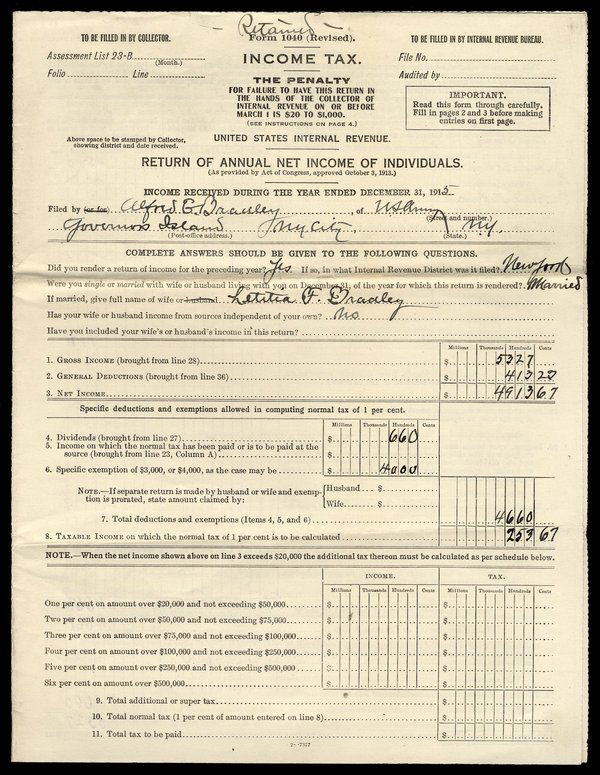 Retained
TO BE FILLED IN BY COLLECTOR.
Form 1040 (Revised).
TO BE FILLED IN BY INTERNAL REVENUE BUREAU.
Assessment List 23-B
(Month.)
INCOME TAX.
File No.
Folio Line
Audited by
THE PENALTY
FOR FAILURE TO HAVE THIS RETURN IN
THE HANDS OF THE COLLECTOR OF
INTERNAL REVENUE ON OR BEFORE
MARCH 1 IS $20 TO $1,000.
(SEE INSTRUCTIONS ON PAGE 4.)
IMPORTANT.
Read this form through carefully.
Fill in pages 2 and 3 before making
entries on first page.
Above space to be stamped by Collector,
showing district and date received.
UNITED STATES INTERNAL REVENUE.
RETURN OF ANNUAL NET INCOME OF INDIVIDUALS.
(As provided by Act of Congress, approved October 3, 1913.)
INCOME RECEIVED DURING THE YEAR ENDED DECEMBER 31, 1915
Filed by (or for) Alfred E Bradley, of US Army
(Street and number.)
Governors Island NY City, NY
(Post-office address.) (State.)
COMPLETE ANSWERS SHOULD BE GIVEN TO THE FOLLOWING QUESTIONS.
Did you render a return of income for the preceding year? Yes If so, in what Internal Revenue District was it filed?
Were you single or married with wife or husband living with you on December 31, of the year for which this return is rendered? Married
If married, give full name of wife or husband. Letitia F. Bradley
Has your wife or husband income from sources independent of your own? No
Have you included your wife's or husband's income in this return?
Millions Thousands Hundreds Cents
1. GROSS INCOME (brought from line 28) $ 5327
2. GENERAL DEDUCTIONS (brought from line 36) $ 413
3. NET INCOME $ 4913 67
Specific deductions and exemptions allowed in computing normal tax of 1 per cent.
Millions Thousands Hundreds Cents
4. Dividends (brought from line 27) $ 660
5. Income on which the normal tax has been paid or is to be paid at the
source (brought from line 23, Column A) $
6. Specific exemption of $3,000, or $4,000, as the case may be $ 4000
NOTE.—If separate return is made by husband or wife and exemp-
tion is prorated, state amount claimed by:
Husband $
Wife $
7. Total deductions and exemptions (Items 4, 5, and 6) 4660
8. TAXABLE INCOME on which the normal tax of 1 per cent is to be calculated 253 67
NOTE.—When the net income shown above on line 3 exceeds $20,000 the additional tax thereon must be calculated as per schedule below.
INCOME. TAX.
Millions Thousands Hundreds Cents Millions Thousands Hundreds Cents
One per cent on amount over $20,000 and not exceeding $50,000 $ $
Two per cent on amount over $50,000 and not exceeding $75,000 $ $
Three per cent on amount over $75,000 and not exceeding $100,000 $ $
Four per cent on amount over $100,000 and not exceeding $250,000 $ $
Five per cent on amount over $250,000 and not exceeding $500,000 $ $
Six per cent on amount over $500,000 $ $
9. Total additional or super tax $
10. Total normal tax (1 per cent of amount entered on line 8) $
11. Total tax to be paid $